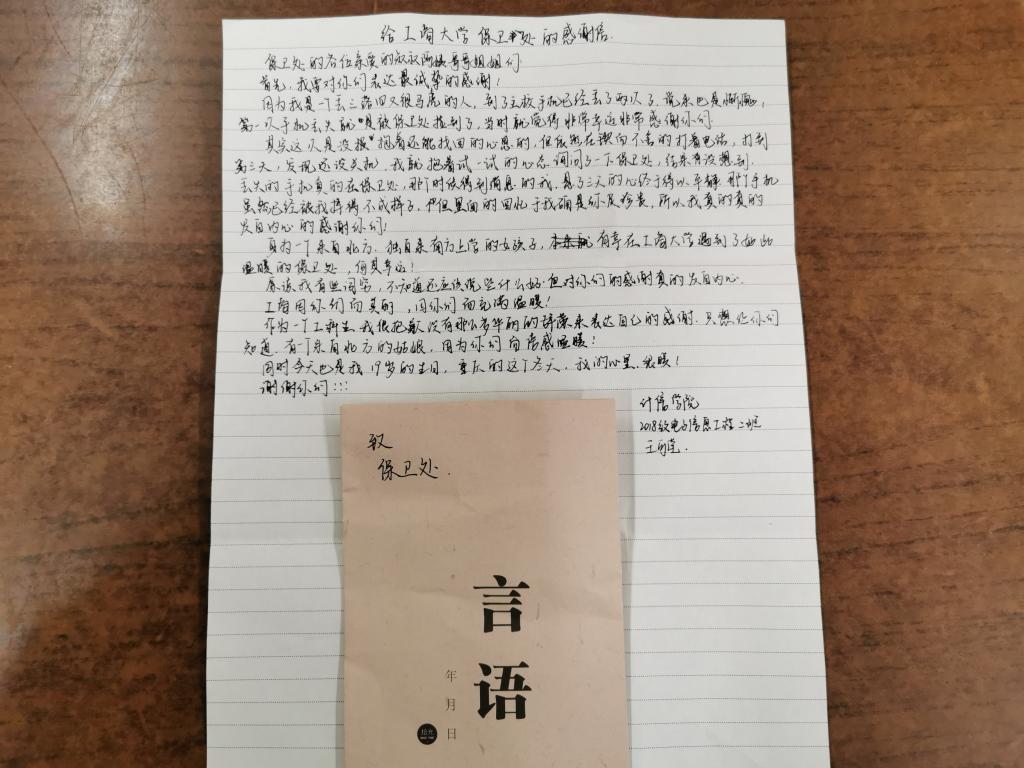 给工商大学保卫处的感谢信
保卫处的各位亲爱的叔叔阿姨哥哥姐姐们
首先,我要对你们表达最诚挚的感谢!
因为我是一个丢三落四又很马虎的人,到了主校手机已经丢了两次了,说来也是惭愧,
第一次手机丢失就是被保卫处捡到了,当时就觉得非常幸运非常感谢你们
其实这次是没报"抱着还能找回的心思的,但依然在锲而不舍的打着电话,打到
第三天,发现还没关机,我就抱着试一试的心态询问了一下保卫处,结果有没想到,
丢失的手机真的在保卫处,那个时候得到消息的我,悬了三天的心终于得以平静.那个手机
虽然已经被我摔得不成样子,但里面的回忆于我确是弥足珍贵,所以我真的真的
发自内心的感谢你们!
身为一个来自北方,独自来南方上学的女孩子,有幸在工商大学遇到了如此
温暖的保卫处,何其幸运!
应该我有些词穷,不知道还应该说些什么好.但对你们的感谢真的发自内心
工商因你们而美丽,因你们而充满温暖!
作为一个工科生我很抱歉没有那么多华丽的辞藻来表达自己的感谢.只想让你们
知道.有一个来自北方的姑娘,因为你们而倍感温暖!
同时今天也是我19岁的生日,重庆的这个冬天,我的心里很暖!
谢谢你们!!!
计信学院
2018级电子信息工程二班
致
保卫处.
言
语
年
月
日